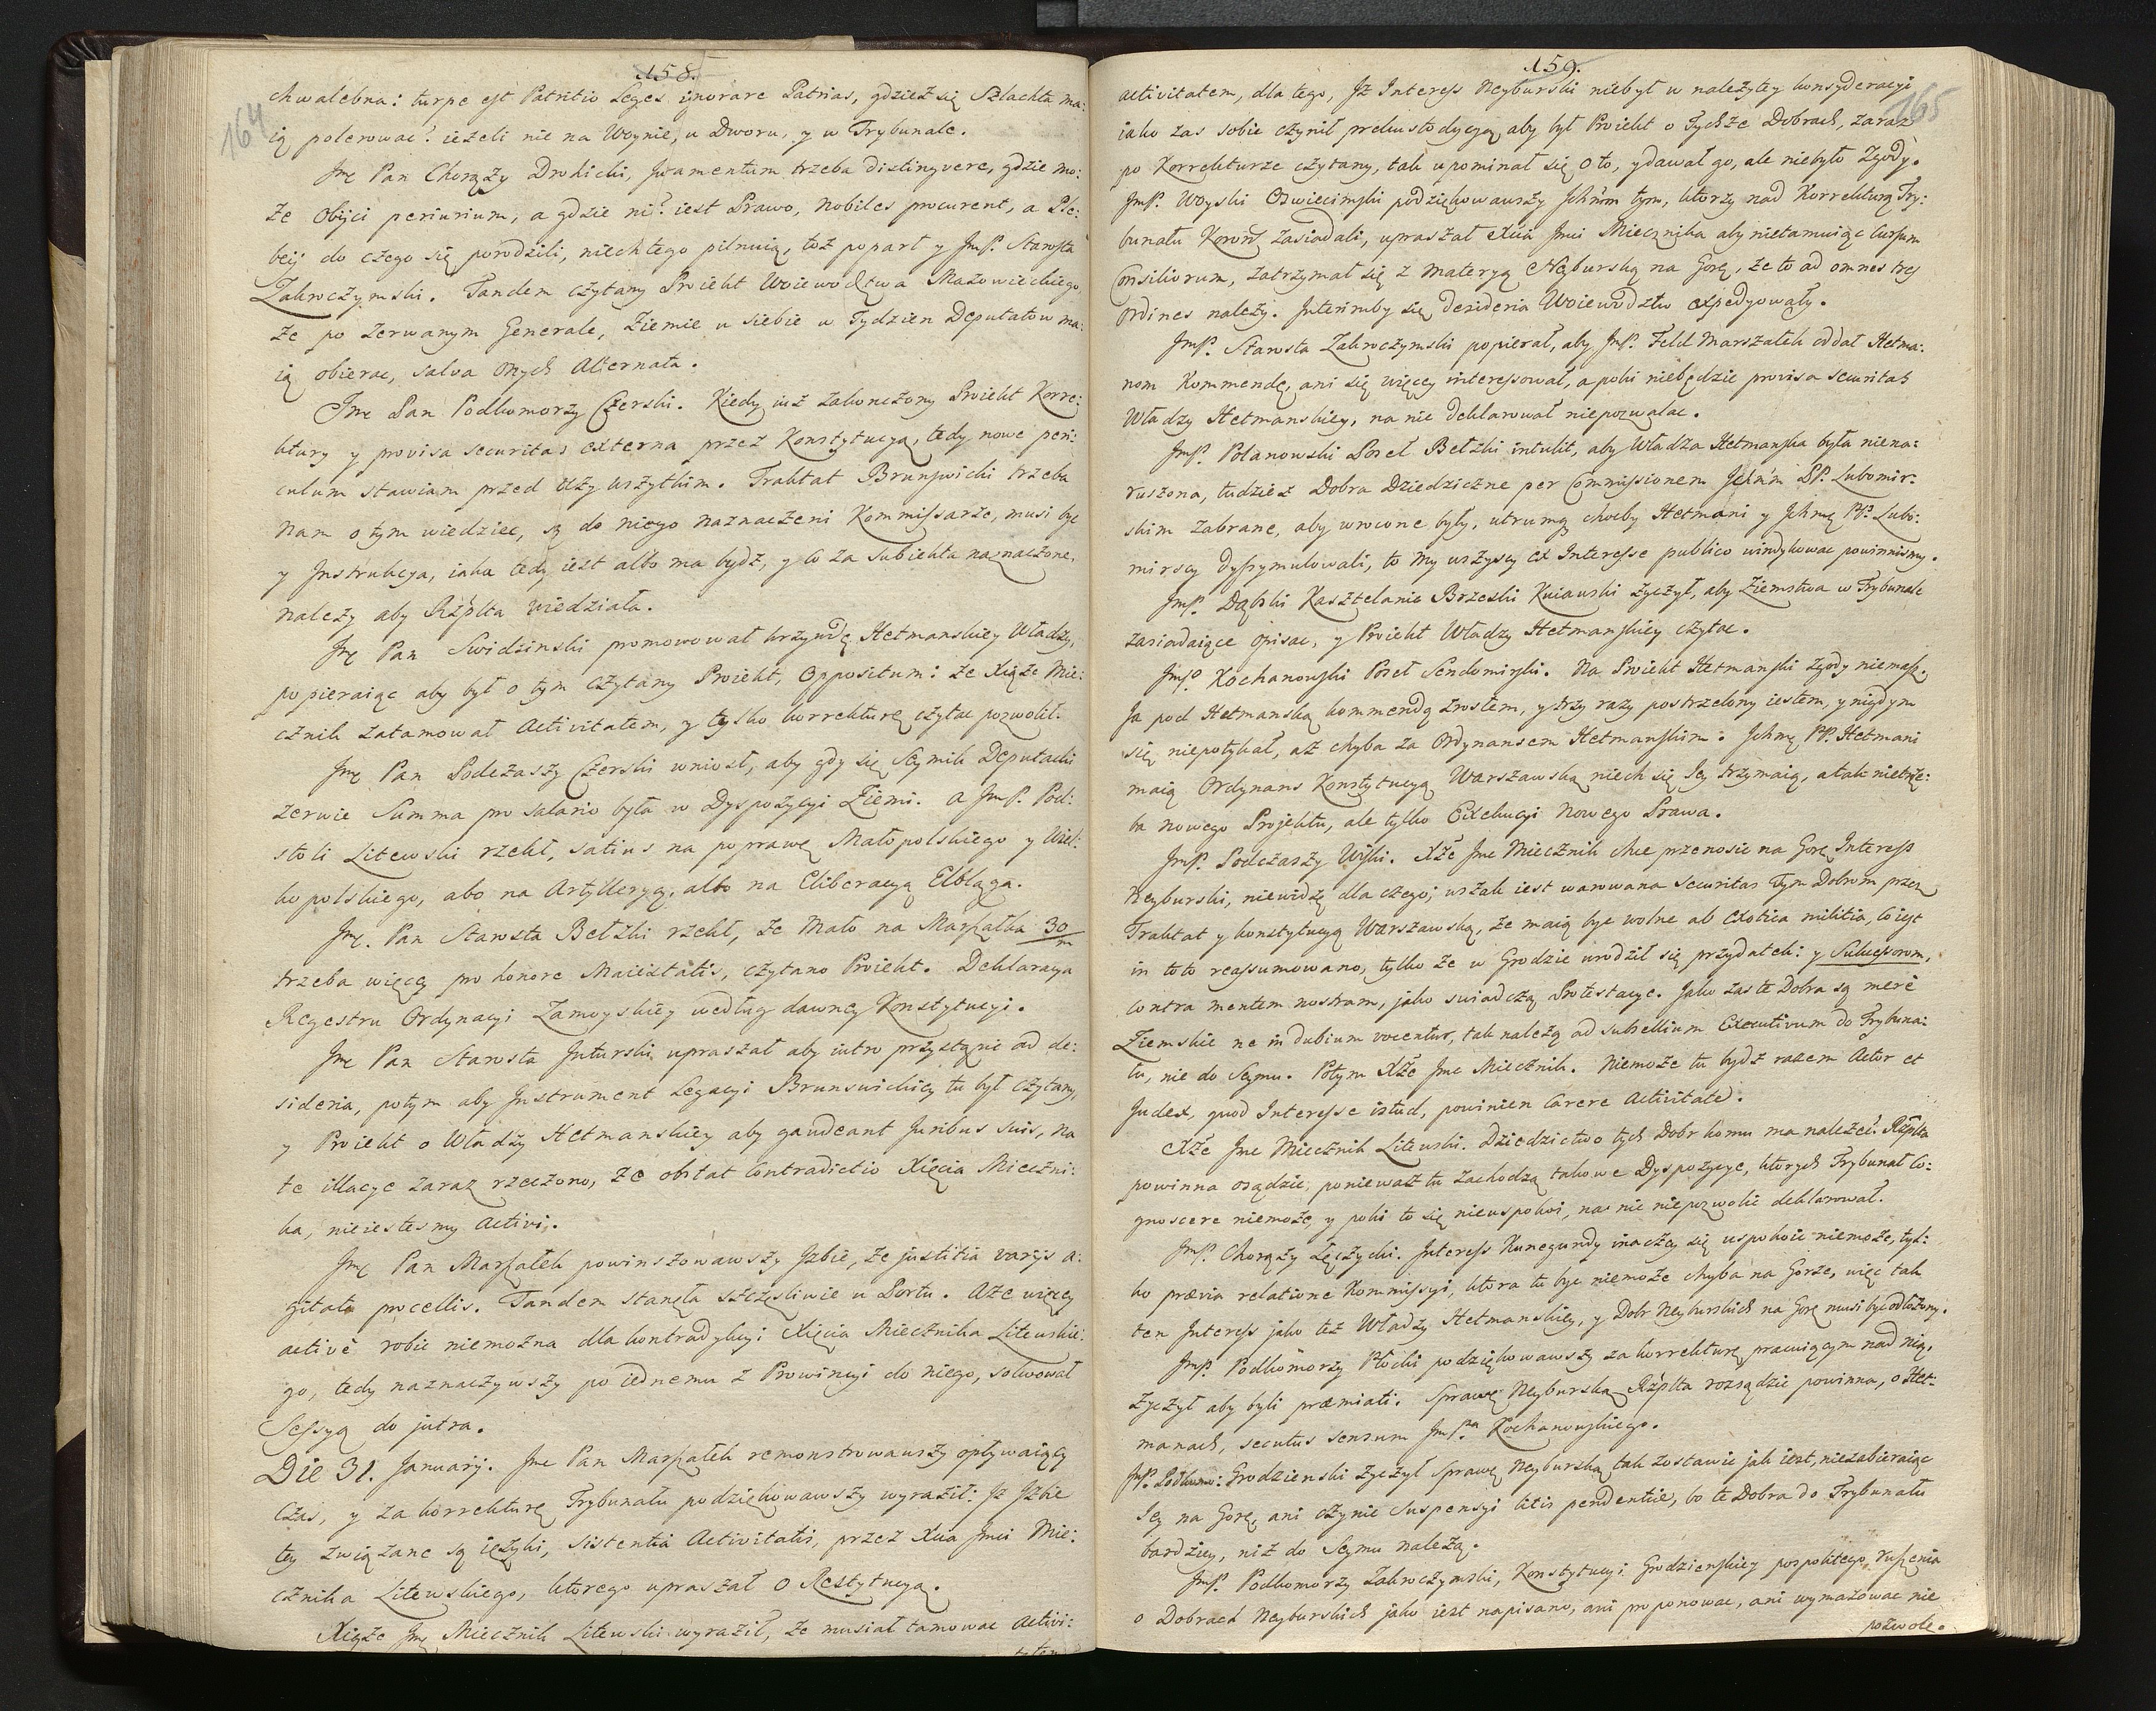 158.
164
chwalebna: turpe est Patritio Leges ignorare Patrias, gdzież się Szlachta ma:
ią polerować? ieżeli nie na Woynie, u Dworu, y w Trybunale.
Jmć Pan Chorąży Drohicki, Juramentum trzeba distingvere, gdzie mo:
że obijci periurium, a gdzie ni? iest Prawo, Nobiles procurent, a Ple:
beij do czego się porodzili, niech tego pilnuią, toż poparł y JmP. Starosta
Zakroczymski. Tandem czytany Proiekt Woiewodztwa Mazowieckiego,
że po zerwanym Generale, Ziemie u siebie w Tydzien Deputatow ma:
ią obierac, salva onych Alternata.
Jmć Pan Podkomorzy Czerski. Kiedy iuż zakonczony Proiekt Korre:
ktury y provisa securitas externa przez Konstytucyą, tedy nowe peri:
culum stawiam przed oczy wszytkim. Traktat Brunswicki trzeba
nam o tym wiedziec, są do niego naznaczeni Kommissarze, musi byc
y Instrukcya, iaka tedy iest albo ma bydź, y co za subiekta naznaczone,
należy aby Rzplta wiedziała.
Jmć Pan Swidzinski promowował krzywdę Hetmanskiey Władzy,
popieraiąc aby był o tym czytany Proiekt, Oppositum: że Xiąże Mie:
cznik zatamował Activitatem, y tylko korrekturę czytac pozwolił.
Jmć Pan Podczaszy Czerski wniosł, aby gdy się Seymik Deputacki
zerwie Summa pro salario była w Dyspozycyi Ziemi. a JmP. Pod:
stoli Litewski rzekł, satius na poprawę Małopolskiego y Wiel:
kopolskiego, abo na Artylleryą, albo na Eliberacyą Elbląga.
Jmć. Pan Starosta Bełzki rzekł, że mało na Marszałka 30/m
trzeba więcey pro honore Maiestatis, czytano Proiekt. Deklaracya
Regestru Ordynacyi Zamoyskiey według dawney Konstytucyi.
Jmć Pan Starosta Juturski upraszał aby iutro przystąpic ad de:
sideria, potym aby Instrument Legacyi Brunswickiey tu był czytany,
y Proiekt o Władzy Hetmanskiey aby gaudeant Juribus suis, na
te illacye zaraz rzeczono, że obstat Contradictio Xięcia Mieczni:
ka, nieiestesmy Activi.
Jmć Pan Marszałek powinszowawszy Izbie, że justitia varijs a:
gitata procellis. Tandem stanęła szczęsliwie u Portu. Aże więcey
activè robic niemożna dla kontradykcyi Xięcia Miecznika Litewskie:
go, tedy naznaczywszy po iednemu z Prowincyi do niego, solwował
Sessyą do jutra.
Die 31. Januarij. Jmc Pan Marszałek remonstrowawszy opływaiący
Czas, y za korrekturę Trybunału podziękowawszy wyraził: Iż Izbie
tey związane są ięzyki, sistentia Activitatis, przez Xcia Jmci Mie:
cznika Litewskiego, ktorego upraszał o Restytucyą.
Xiąże Jmć Miecznik Litewski wyraził, że musiał tamowac Activi:
tatem
159.
165
activitatem, dla tego, Iż Interess Neyburski niebył w należytey konsyderacyi
iako zas sobie czynił prekustodycyą, aby był Proiekt o Tychże Dobrach, zaraz
po Korrekturze czytany, tak upominał się o to, y dawał go, ale niebyło Zgody.
JmP. Woyski Oswiecimski podziękowawszy Ichmm tym, ktorzy nad Korrekturą Try:
bunału Koron. zasiadali, upraszał Xcia Jmci Miecznika aby nietamuiąc Cursum
Consiliorum, zatrzymał się z Materyą Neyburską na Gorę, że to ad omnes tres
Ordines należy. Interimby się desideria Woiewodztw expedyowały.
JmP. Starosta Zakroczymski popierał, aby JmP. Feld Marszałek oddał Hetma:
nom Kommendę, ani się więcey interessował, a poki niebędzie provisa securitas
Władzy Hetmanskiey, na nic deklarował niepozwalac.
JmP. Polanowski Poseł Bełzki intulit, aby Władza Hetmanska była niena:
ruszona, tudzież Dobra Dziedziczne per Commissionem Ichmm PP. Lubomir:
skim zabrane, aby wrocone były, utrumq choćby Hetmani y Ichmć PP. Lubo:
mirscy dyssymulowali, to my wszyscy ex Interesse publico windykowac powinnismy.
JmP. Dąbski Kasztelanic Brzeski Kuiawski życzył, aby Ziemstwa w Trybunale
zasiadaiące opisac, y Proiekt Władzy Hetmanskiey czytac.
JmP. Kochanowski Poseł Sendomirski. Na Proiekt Hetmanski zgody niemasz,
Ja pod Hetmanską kommendą zrosłem, y trzy razy postrzelony iestem, y nigdym
się niepotykał, aż chyba za Ordynansem Hetmanskim. Ichmć PP. Hetmani
maią Ordynans Konstytucyą Warszawską niech się Jey trzymaią, a tak nietrze:
ba nowego Projektu, ale tylko Exekucyi Nowego Prawa.
JmP. Podczaszy Wiski. Xże Jmc Miecznik chce przenosic na Gorę Interess
Neyburski, niewidzę dla czego; wszak iest warowana securitas Tym Dobrom przez
Traktat y konstytucyą Warszawską, że maią byc wolne ab exotica militia, co iest
in toto reassumowano, tylko że w Grodzie urodził się przydatek: y Sukcessorom,
contra mentem nostram, jako swiadczą Protestacye. Jako zas te Dobra są merè
Ziemskie ne in dubium vocentur, tak należą ad subsellium Executivum do Trybuna:
łu, nie do Seymu. Potym Xże Jmc Miecznik. Niemoże tu bydź razem Actor et
Judex, quod Interesse istud, powinien carere Activitate.
Xże Jmc Miecznik Litewski. Dziedzictwo tych Dobr komu ma należeć? Rzplta
powinna osądzic, poniewasz tu zachodzą takowe Dyspozycye, ktorych Trybunał co:
gnoscere niemoże, y poki to się nieuspokoi, na nic niepozwolic deklarował.
JmP. Chorąży Łęczycki. Interess Kunegundy inaczey się uspokoic niemoże, tyl:
ko prævia relatione Kommissyi, ktora tu byc niemoże chyba na Gorze, więc tak
ten Interess jako też Władzy Hetmanskiey, y Dobr Neyburskich na Gorę musi byc odłożony.
JmP. Podkomorzy Płocki podziękowawszy za korrekturę pracuiącym nad nią,
życzył aby byli præmiati. Sprawę Neyburską Rzplta rozsądzic powinna, o Het:
manach, secutus sensum JmPa Kochanowskiego.
JmP. Podkomo: Grodzienski życzył sprawę Neyburską tak zostawic jak iest, niezabieraiąc
Jey na Gorę, ani czynic suspensyi litis pendentiæ, bo te Dobra do Trybunału
bardziey, niż do Seymu należą.
JmP. Podkomorzy Zakroczymski, Konstytucyi Grodzienskiey pospolitego ruszenia
o Dobrach Neyburskich jako iest napisano, ani proponowac, ani wymazowac nie
pozwole.